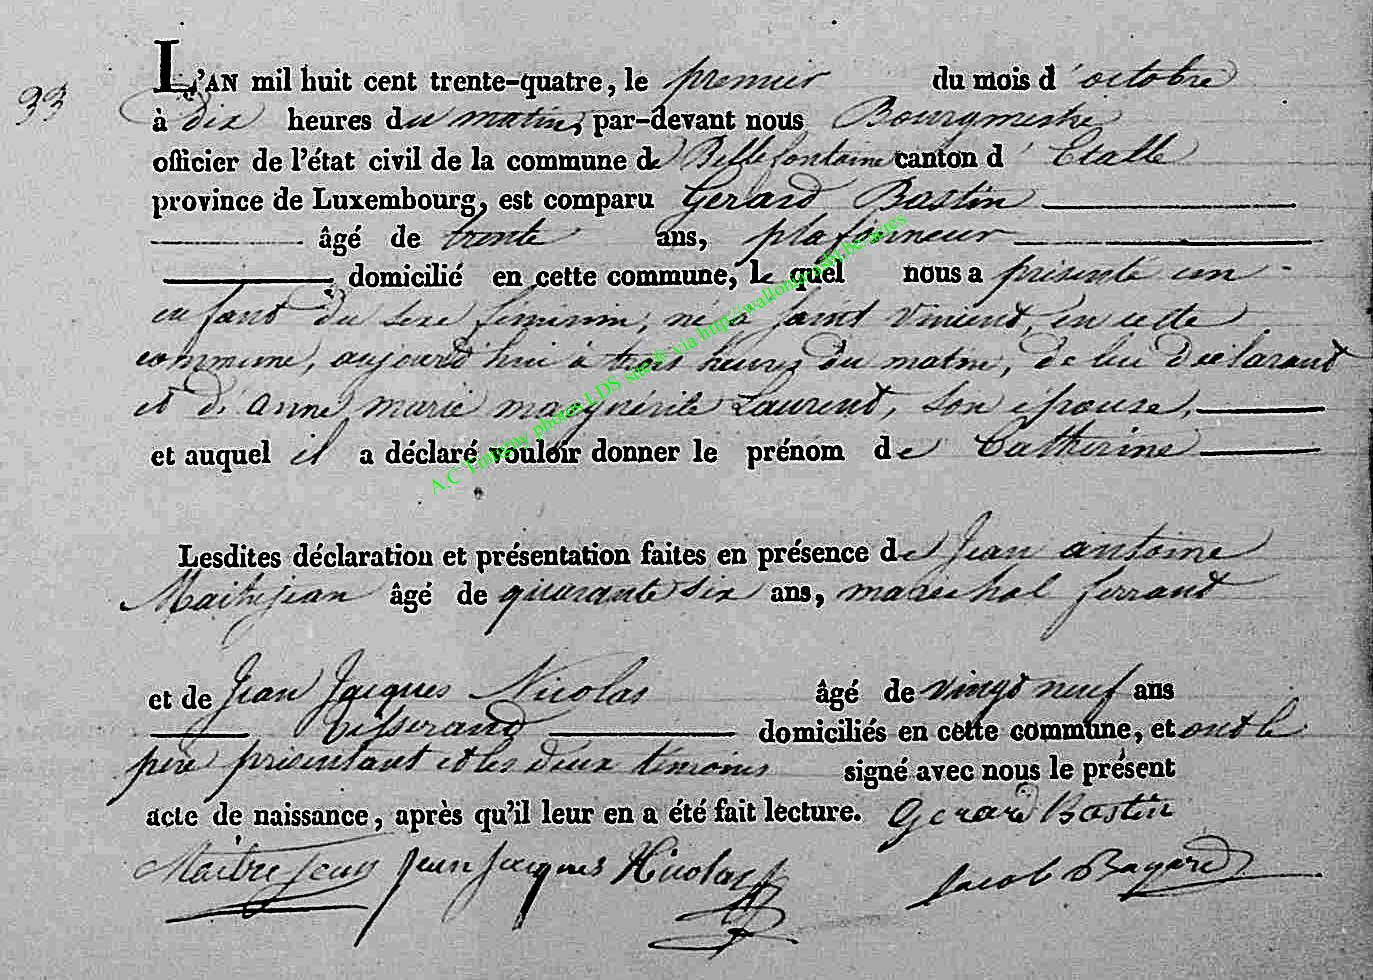 33
L'AN mil huit cent trente-quatre, le premier du mois d'octobre
à dix heures du matin, par-devant nous Bourgmestre
officier de l'état civil de la commune de Bellefontaine canton d'Etalle
province de Luxembourg, est comparu Gerard Bastin
âgé de trente ans, plafonneur
domicilié en cette commune, le quel nous a présenté un
enfant du sexe féminin, né à saint Vincent, en cette
commune, aujourd'hui à trois heures du matin, de lui déclarant
et d'anne marie marguérite Laurent, son épouse,
et auquel il a déclaré vouloir donner le prénom de Catherine
A.C Tintigny photos LDS site via http://wallonica
Lesdites déclaration et présentation faites en présence de Jean antoine
Maitrejean âgé de quarante six ans, marechal ferrant
et de Jean Jacques Nicolas âgé de vingt neuf ans
tisserand domiciliés en cette commune, et ont le
père présentant et les deux témoins signé avec nous le présent
acte de naissance, après qu'il leur en a été fait lecture. Gerard Bastin
Maitrejean Jean Jacques Nicolas Jacob Bayard